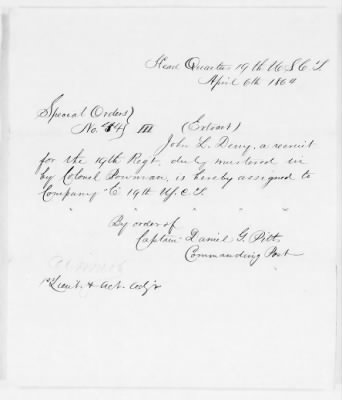 Head Quarters 19th U.S.C.T.
April 6th 1864
Special Orders }
No. 84 } III (Extract)
John L. Deny, a recruit
for the 19th Regt. duly mustered in
by Colonel Bowman, is hereby assigned to
Company "E" 19th U.S.C.T.
" " " " "
By order of
Captain Daniel G. Pitts
Commanding Post
1st Lieut. & Act. Adj't